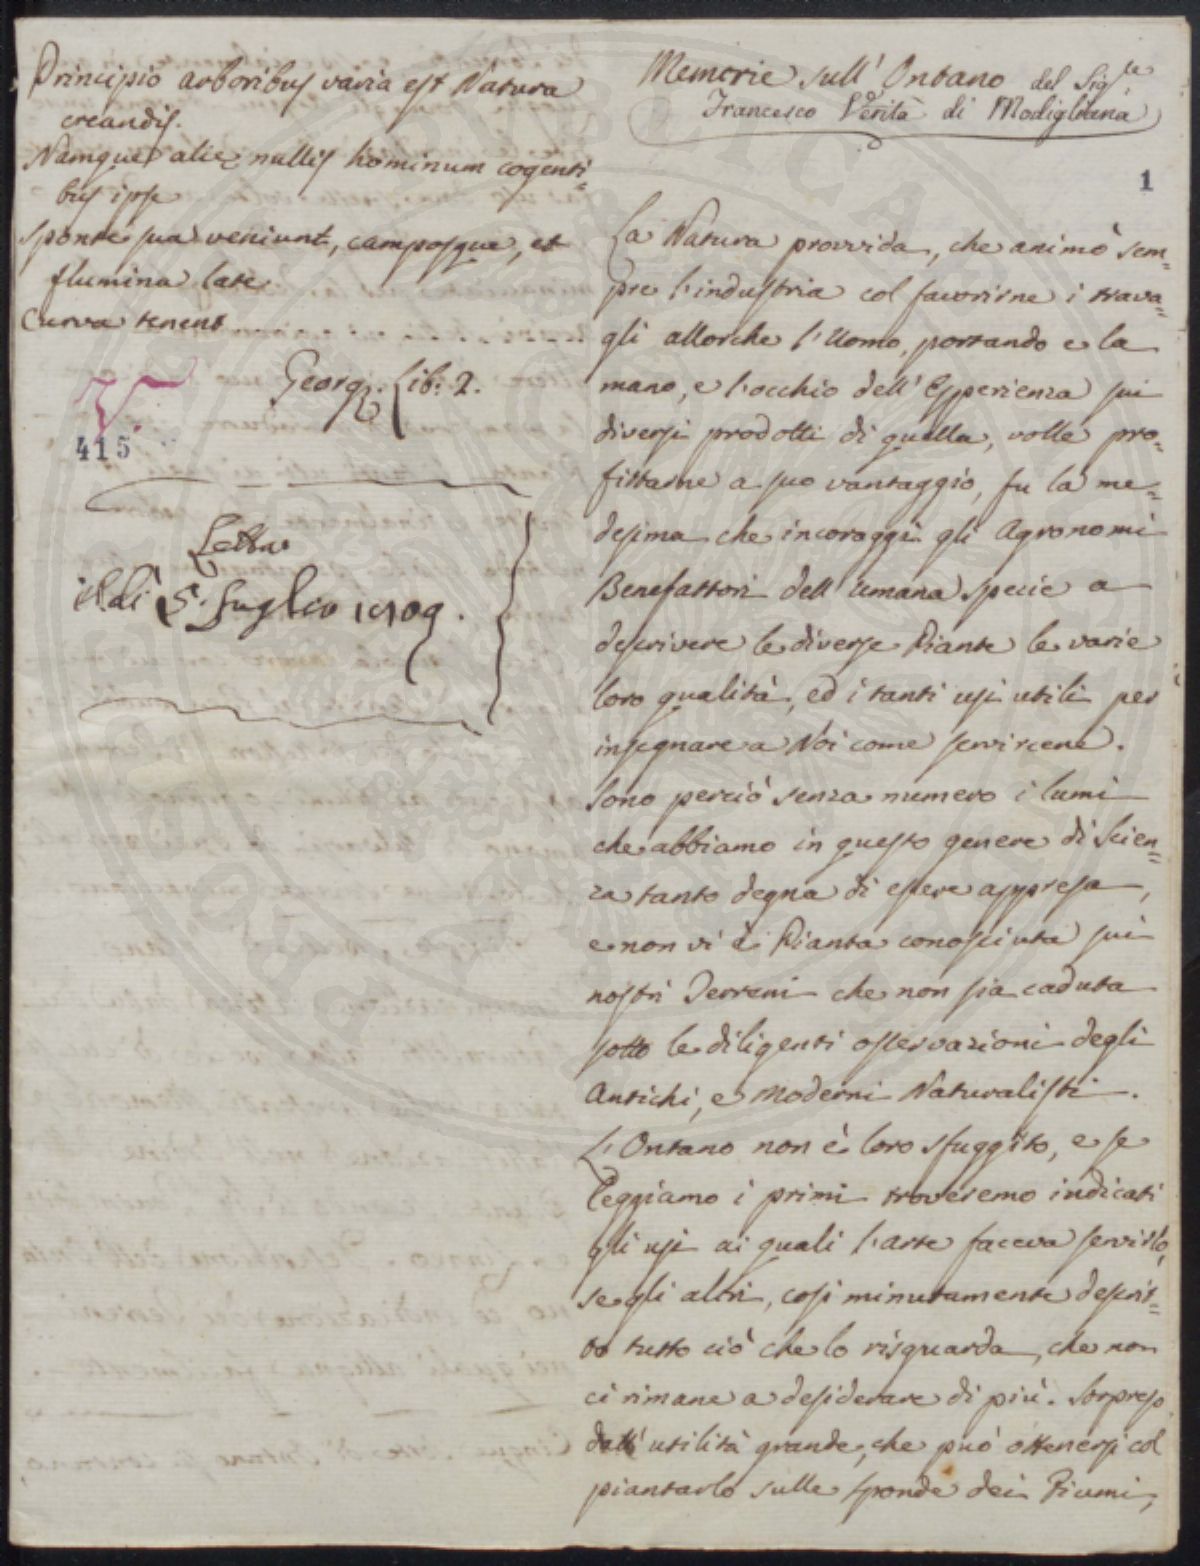 Principio arboribus varia est Natura
creandis.
Namque alie nullis hominum cogenti=
bus ipse
sponte sua veniunt, camposque, et
flumina late
Curva tenent
Georg. Lib: 2.
415
Letta
il dì 5. Luglio 1809.
Memorie sull' Ontano del Sig.re
Francesco Verità di Modigliana
1
La Natura provvida, che animò sem=
pre l'industria col favorirne i trava=
gli allorche l'Uomo, portando e la
mano, e l'occhio dell'Esperienza sui
diversi prodotti di quella, volle pro=
fittarne a suo vantaggio, fu la me=
desima che incoraggì gli Agronomi
Benefattori dell'umana specie a
descrivere le diverse Piante le varie
loro qualità, ed i tanti usi utili per
insegnare a Noi come servircene.
Sono perciò senza numero i lumi
che abbiamo in questo genere di Scien=
za tanto degna di essere appresa,
e non vi è Pianta conosciuta sui
nostri Terreni che non sia caduta
sotto le diligenti osservazioni degli
Antichi, e Moderni Naturalisti.
L'Ontano non è loro sfuggito, e se
leggiamo i primi troveremo indicati
gli usi ai quali l'arte faceva servirlo,
se gli altri, così minutamente descrit=
to tutto ciò che lo risguarda, che non
ci rimane a desiderare di più. Sorpreso
dall'utilità grande, che può ottenersi col
piantarlo sulle sponde dei Fiumi,